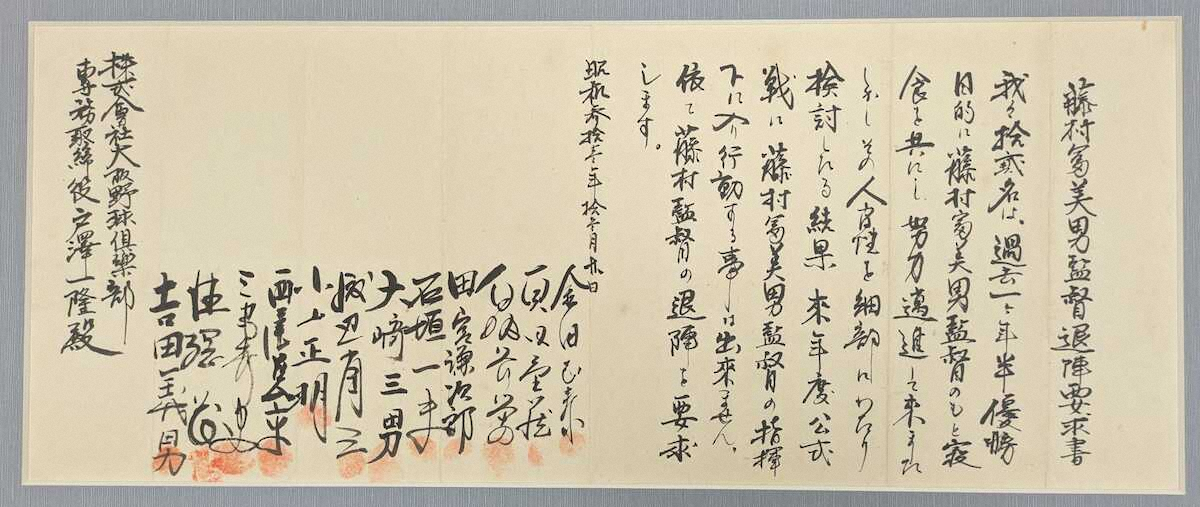 藤村冨美男監督退陣要求書
我々拾貳名は、過去一ヶ年半優勝
目的に藤村冨美男監督のもと寝
食を共にし努力邁進して来ました
しかしその人間性を細部にわたり
検討したる結果来年度公式
戦に藤村冨美男監督の指揮
下に入り行動する事は出来ません。
依て藤村監督の退陣を要求
します。
昭和参拾壱年拾壱月
金田正泰
真田重蔵
白坂長栄
田宮謙次郎
石垣一夫
大崎三男
渡辺省三
小山正明
西村一孔
三船正俊
吉田義男
株式會社大阪野球倶楽部
専務取締役戸澤一隆殿